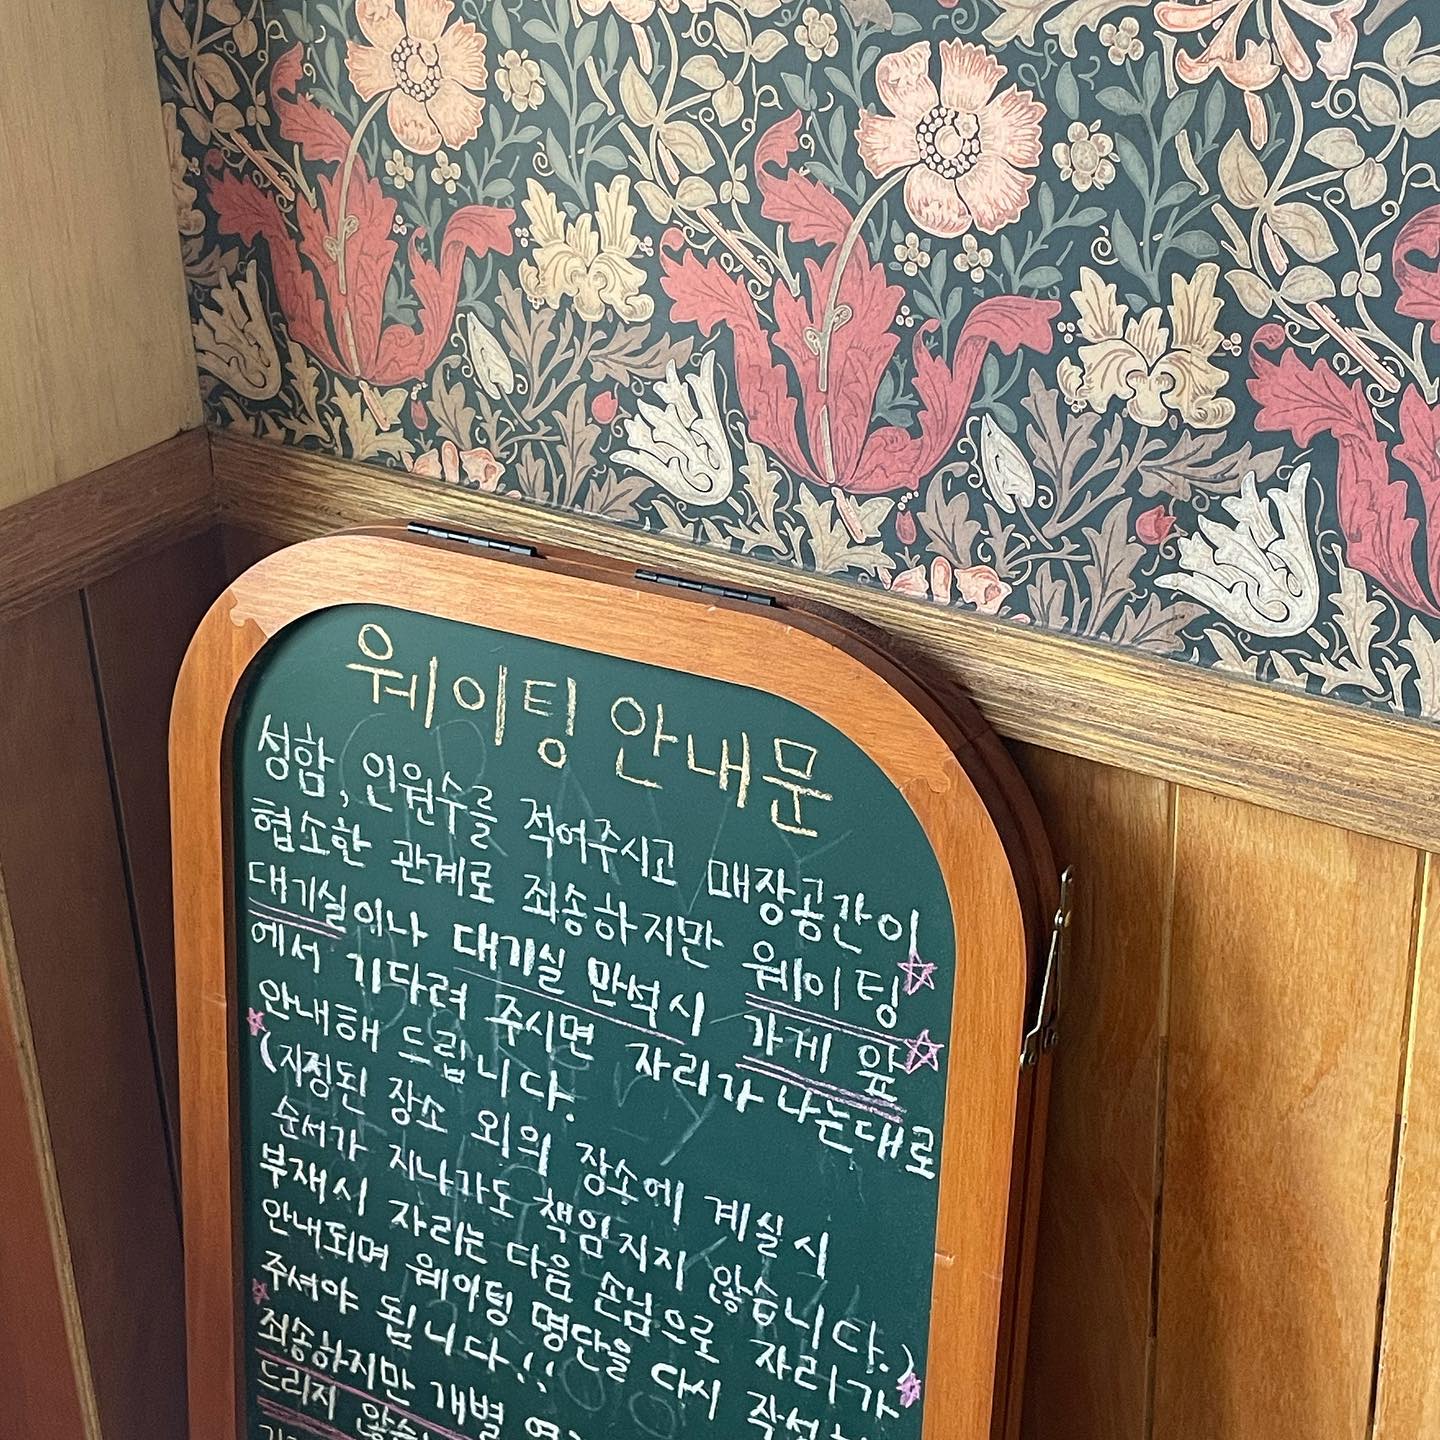 웨이팅 안내문
성함, 인원수를 적어주시고 매장공간이
협소한 관계로 죄송하지만 웨이팅☆
대기실이나 대기실 만석시 가게 앞☆
에서 기다려 주시면 자리가 나는대로
안내해 드립니다.
☆(지정된 장소 외의 장소에 계실 시
순서가 지나가도 책임지지 않습니다.)
부재시 자리는 다음 손님으로 자리가☆
안내되며 웨이팅 명단을 다시
주셔야 됩니다!!
☆죄송하지만 개별
드리지